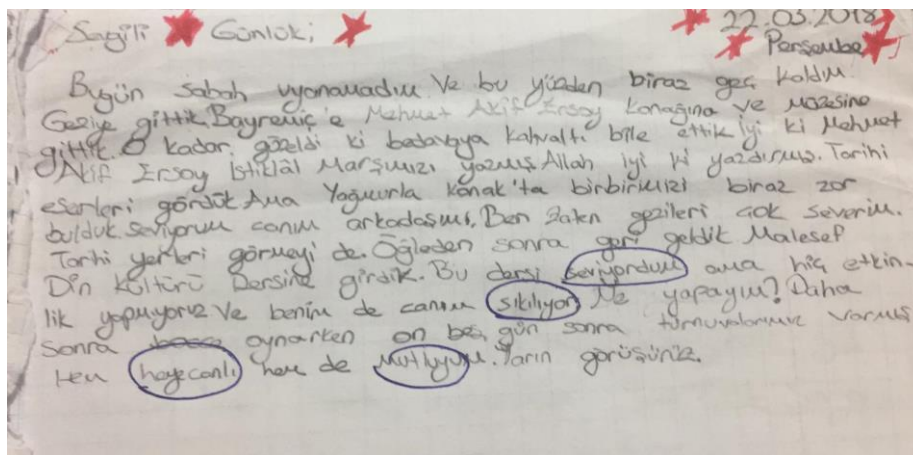 Sagili Günlük; 22.03.2018
Perşembe
Bugün sabah uyanamadım. Ve bu yüzden biraz geç kaldım.
Geziye gittik. Bayramiç'e Mehmet Akif Ersoy Konağına ve müzesine
gittik. O kadar güzeldi ki bedavaya kahvaltı bile ettik iyi ki Mehmet
Akif Ersoy İstiklâl Marşımızı yazmış. Allah iyi ki yazdırmış. Tarihi
eserleri gördük. Ama Yağmurla Konak'ta birbirimizi biraz zor
bulduk. Seviyorum canım arkadaşımı. Ben zaten gezileri çok severim.
Tarihi yerleri görmeyi de. Öğleden sonra geri geldik Malesef
Din Kültürü Dersine girdik. Bu dersi seviyordum ama hiç etkin-
lik yapmıyoruz Ve benim de canım sıkılıyor Ne yapayım? Daha
sonra oynarken on beş gün sonra turnuvalarımız varmış
Hem heyecanlı hem de mutluyum. Yarın görüşürüz.